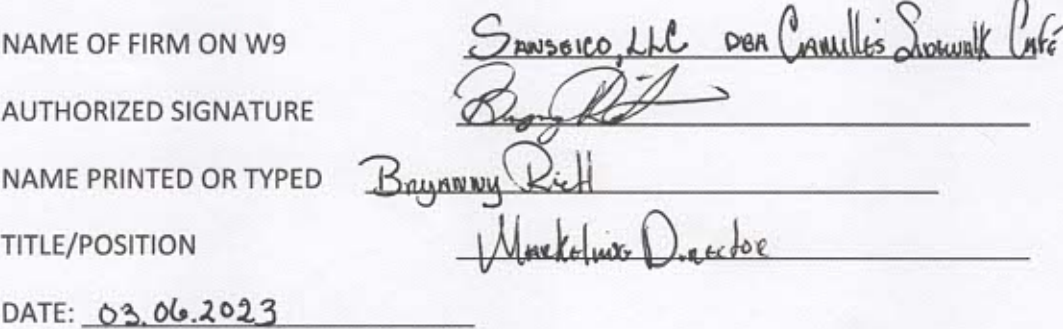 NAME OF FIRM ON W9 Sanseico, LLC DBA Camille's Sidewalk Café
AUTHORIZED SIGNATURE
NAME PRINTED OR TYPED Bryanny Rich
TITLE/POSITION Marketing Director
DATE: 03.06.2023